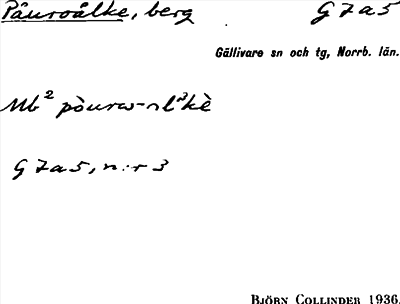 Påuroålke, berg G7a5
Gällivare sn och tg, Norrb. län.
Mb²
G7a5, n:r 3
BJÖRN COLLINDER 1936.